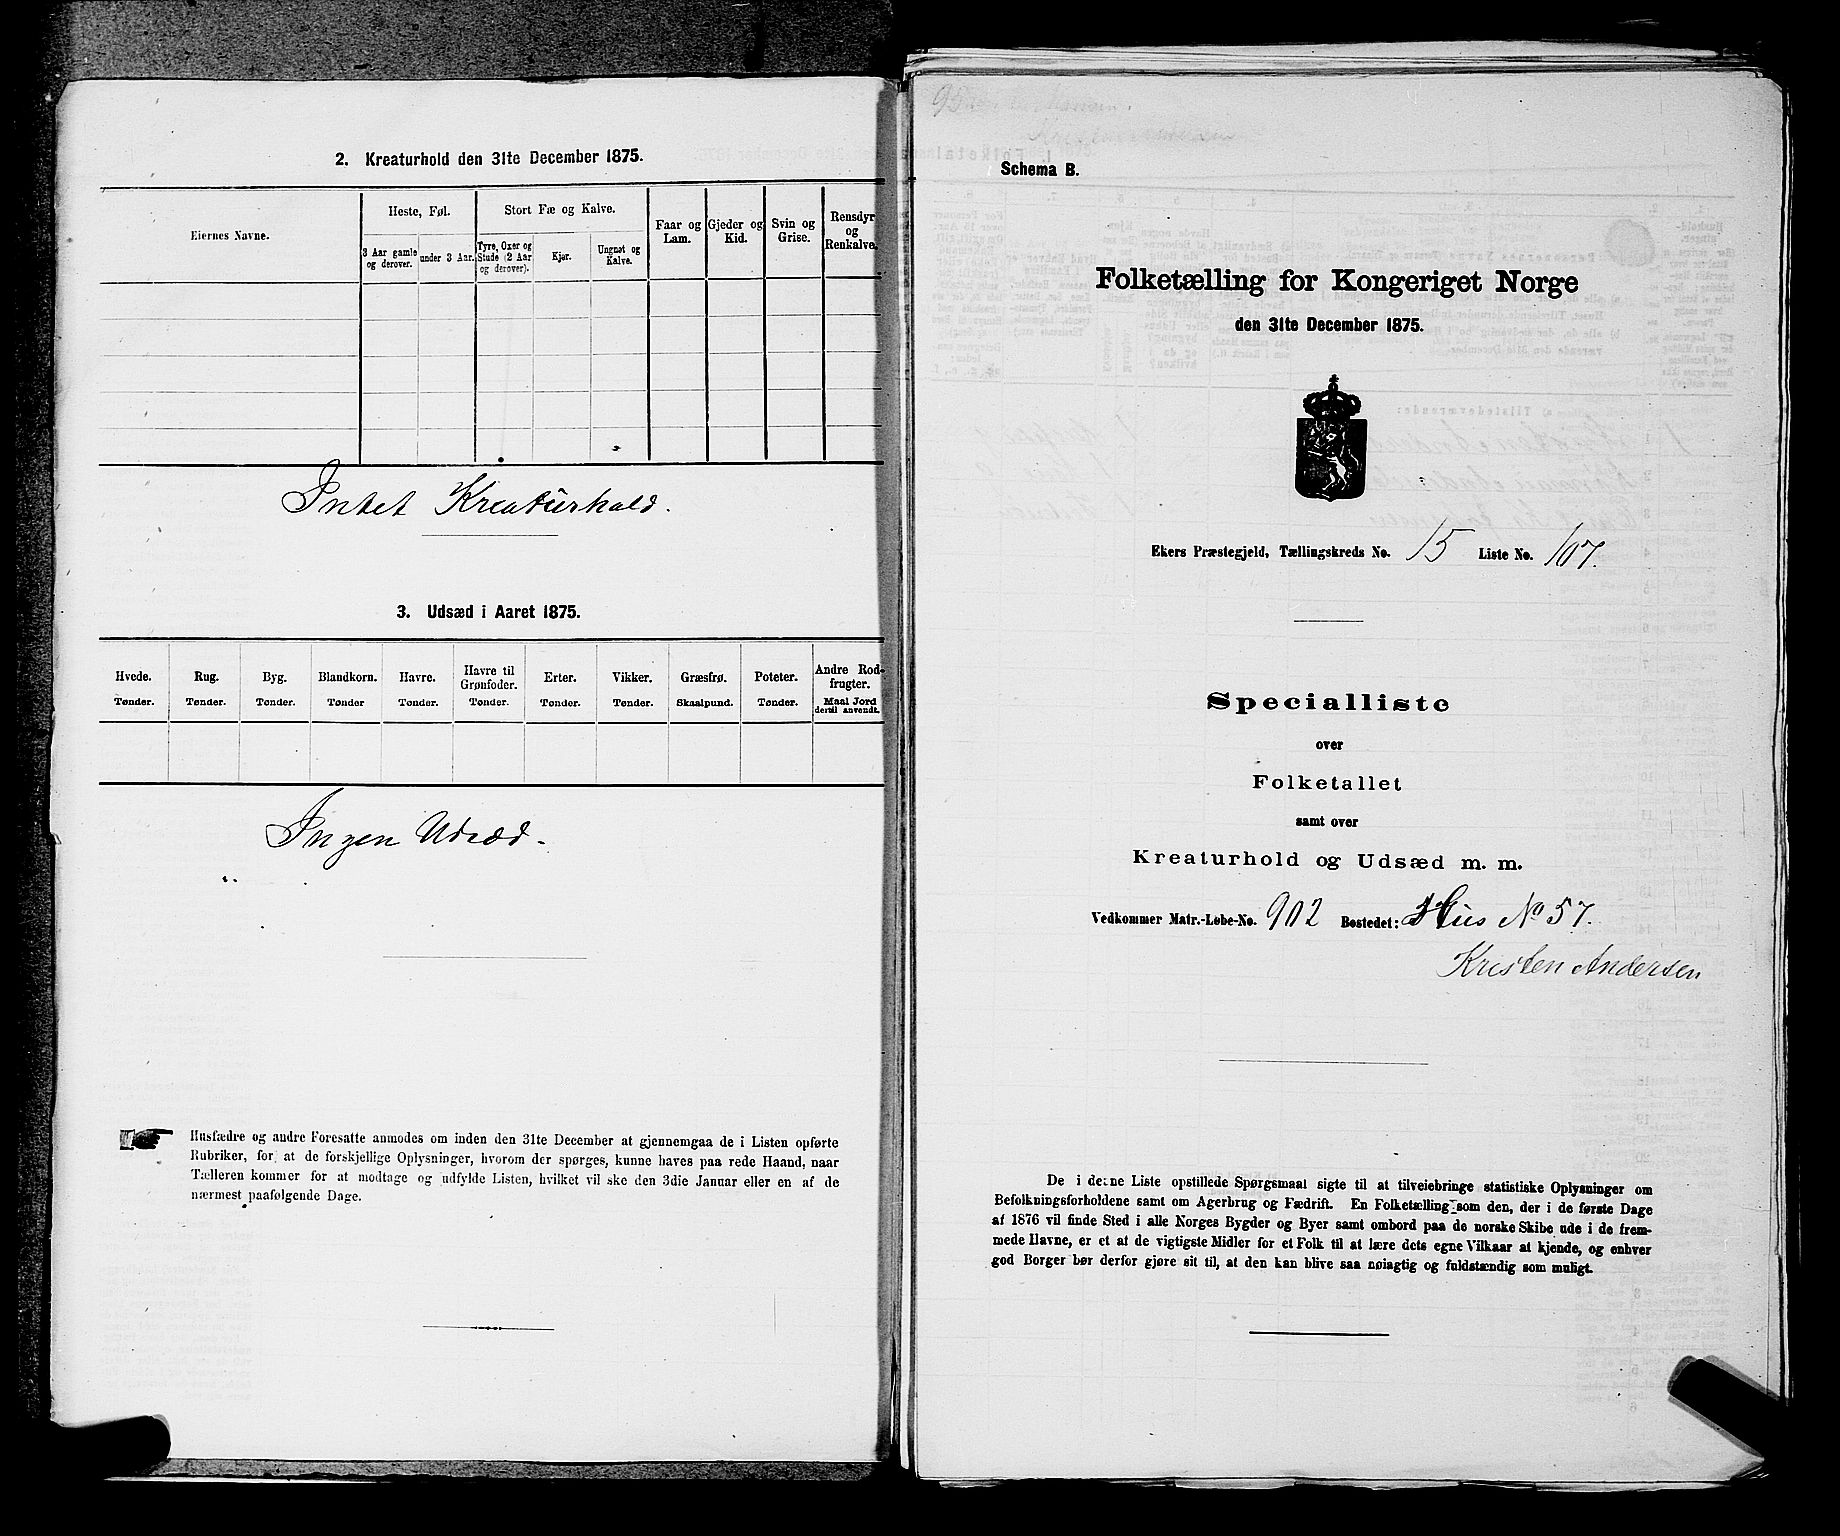 2. Kreaturhold den 31te December 1875.
Eiernes Navne.
Heste, Føl.
Stort Fæ og Kalve.
Faar og Lam.
Gjeder og Kid.
Svin og Grise.
Rensdyr og Renkalve.
3 Aar gamle og derover.
under 3 Aar.
Tyre, Oxer og Stude (2 Aar og derover).
Kjør.
Ungnøt og Kalve.
Intet Kreaturhold.
3. Udsæd i Aaret 1875.
Hvede. Rug. Byg. Blandkorn. Havre. Havre til Grønfoder. Erter. Vikker. Græsfrø. Poteter. Andre Rodfrugter.
Tønder. Tønder. Tønder. Tønder Tønder. Tønder. Tønder. Tønder. Skaalpund. Tønder. Maal Jord dertil anvendt.
Ingen Udsæd.
Husfædre og andre Foresatte anmodes om inden den 31te December at gjennemgaa de i Listen opførte
Rubriker, for at de forskjellige Oplysninger, hvorom der spørges, kunne haves paa rede Haand, naar
Tælleren kommer for at modtage og udfylde Listen, hvilket vil ske den 3die Januar eller en af de
nærmest paafølgende Dage.
Schema B.
Folketælling for Kongeriget Norge
den 31te December 1875.
Ekers Præstegjeld, Tællingskreds No. 15 Liste No. 107.
Specialliste
over
Folketallet
samt over
Kreaturhold og Udsæd m. m.
Vedkommer Matr.-Løbe-No. 902 Bostedet: Hus No 57.
Kristen Andersen
De i denne Liste opstillede Spørgsmaal sigte til at tilveiebringe statistiske Oplysninger om
Befolkningsforholdene samt om Agerbrug og Fædrift. En Folketælling som den, der i de første Dage
af 1876 vil finde Sted i alle Norges Bygder og Byer samt ombord paa de norske Skibe ude i de frem-
mede Havne, er et at de vigtigste Midler for et Folk til at lære dets egne Vilkaar at kjende, og enhver
god Borger bør derfor gjøre sit til, at den kan blive saa nøiagtig og fuldstændig som muligt.